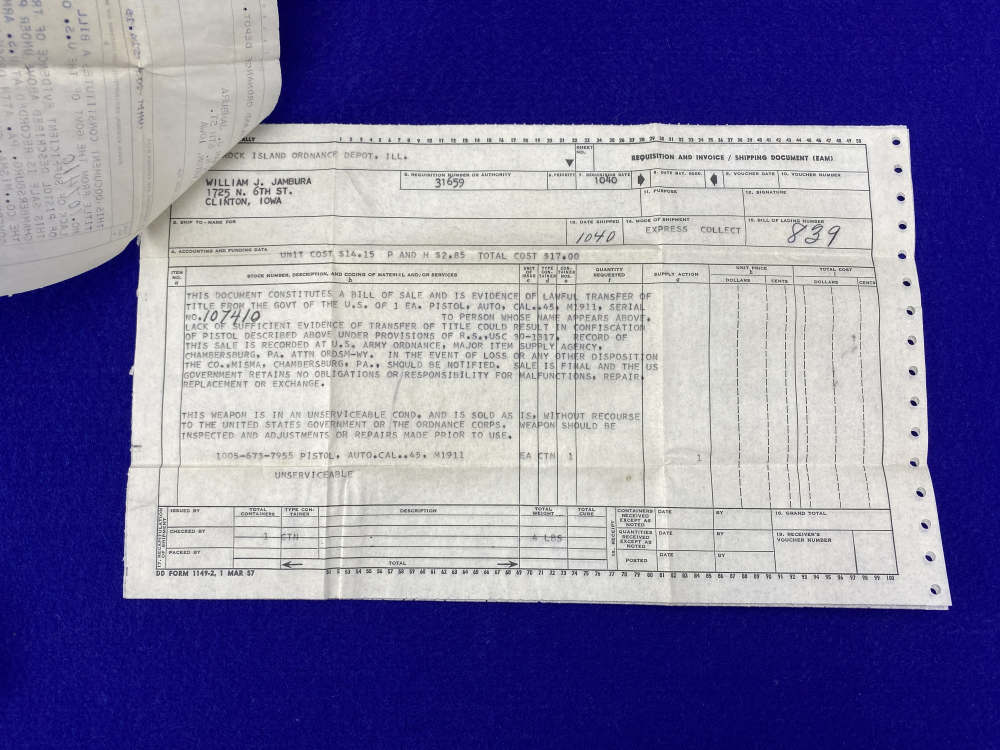 1 2 3 4 5 6 7 8 9 10 11 12 13 14 15 16 17 18 19 20 21 22 23 24 25 26 27 28 29 30 31 32 33 34 35 36 37 38 39 40 41 42 43 44 45 46 47 48 49 50
ROCK ISLAND ORDNANCE DEPOT, ILL.
SHEET NO.
REQUISITION AND INVOICE / SHIPPING DOCUMENT (EAM)
WILLIAM J. JAMBURA
1725 N. 6TH ST.
CLINTON, IOWA
5. REQUISITION NUMBER OR AUTHORITY
31659
6. PRIORITY
7. REQUISITION DATE
1040
8. DATE MAT. REQD.
9. VOUCHER DATE
10. VOUCHER NUMBER
11. PURPOSE
12. SIGNATURE
3. SHIP TO - NAME FOR
13. DATE SHIPPED
1040
14. MODE OF SHIPMENT
EXPRESS COLLECT
15. BILL OF LADING NUMBER
839
4. ACCOUNTING AND FUNDING DATA
UNIT COST $14.15 P AND H $2.85 TOTAL COST $17.00
ITEM NO. a
STOCK NUMBER, DESCRIPTION, AND CODING OF MATERIAL AND/OR SERVICES b
UNIT OF ISSUE c
TYPE CONTAINER d
CONTAINER NOS. e
QUANTITY REQUESTED f
SUPPLY ACTION g
UNIT PRICE h
DOLLARS CENTS
TOTAL COST i
DOLLARS CENTS
THIS DOCUMENT CONSTITUTES A BILL OF SALE AND IS EVIDENCE OF LAWFUL TRANSFER OF
TITLE FROM THE GOVT OF THE U.S. OF 1 EA. PISTOL, AUTO, CAL..45, M1911, SERIAL
NO. 107410 TO PERSON WHOSE NAME APPEARS ABOVE.
LACK OF SUFFICIENT EVIDENCE OF TRANSFER OF TITLE COULD RESULT IN CONFISCATION
OF PISTOL DESCRIBED ABOVE UNDER PROVISIONS OF R.S.,USC 50-1317. RECORD OF
THIS SALE IS RECORDED AT U.S. ARMY ORDNANCE, MAJOR ITEM SUPPLY AGENCY,
CHAMBERSBURG, PA. ATTN ORDSM-WY. IN THE EVENT OF LOSS OR ANY OTHER DISPOSITION
THE CO.,MISMA, CHAMBERSBURG, PA., SHOULD BE NOTIFIED. SALE IS FINAL AND THE US
GOVERNMENT RETAINS NO OBLIGATIONS OR RESPONSIBILITY FOR MALFUNCTIONS, REPAIR,
REPLACEMENT OR EXCHANGE.
THIS WEAPON IS IN AN UNSERVICEABLE COND. AND IS SOLD AS IS, WITHOUT RECOURSE
TO THE UNITED STATES GOVERNMENT OR THE ORDNANCE CORPS. WEAPON SHOULD BE
INSPECTED AND ADJUSTMENTS OR REPAIRS MADE PRIOR TO USE.
1005-673-7955 PISTOL, AUTO.CAL..45, M1911 EA CTN 1 1
UNSERVICEABLE
17. RECAPITULATION OF SHIPMENT
ISSUED BY
TOTAL CONTAINERS
TYPE CONTAINER
DESCRIPTION
TOTAL WEIGHT
TOTAL CUBE
CHECKED BY
1 CTN
4 LBS
PACKED BY
TOTAL
18. RECEIPT
CONTAINERS RECEIVED EXCEPT AS NOTED
DATE
BY
QUANTITIES RECEIVED EXCEPT AS NOTED
DATE
BY
POSTED
DATE
BY
16. GRAND TOTAL
19. RECEIVER'S VOUCHER NUMBER
DD FORM 1149-2, 1 MAR 57